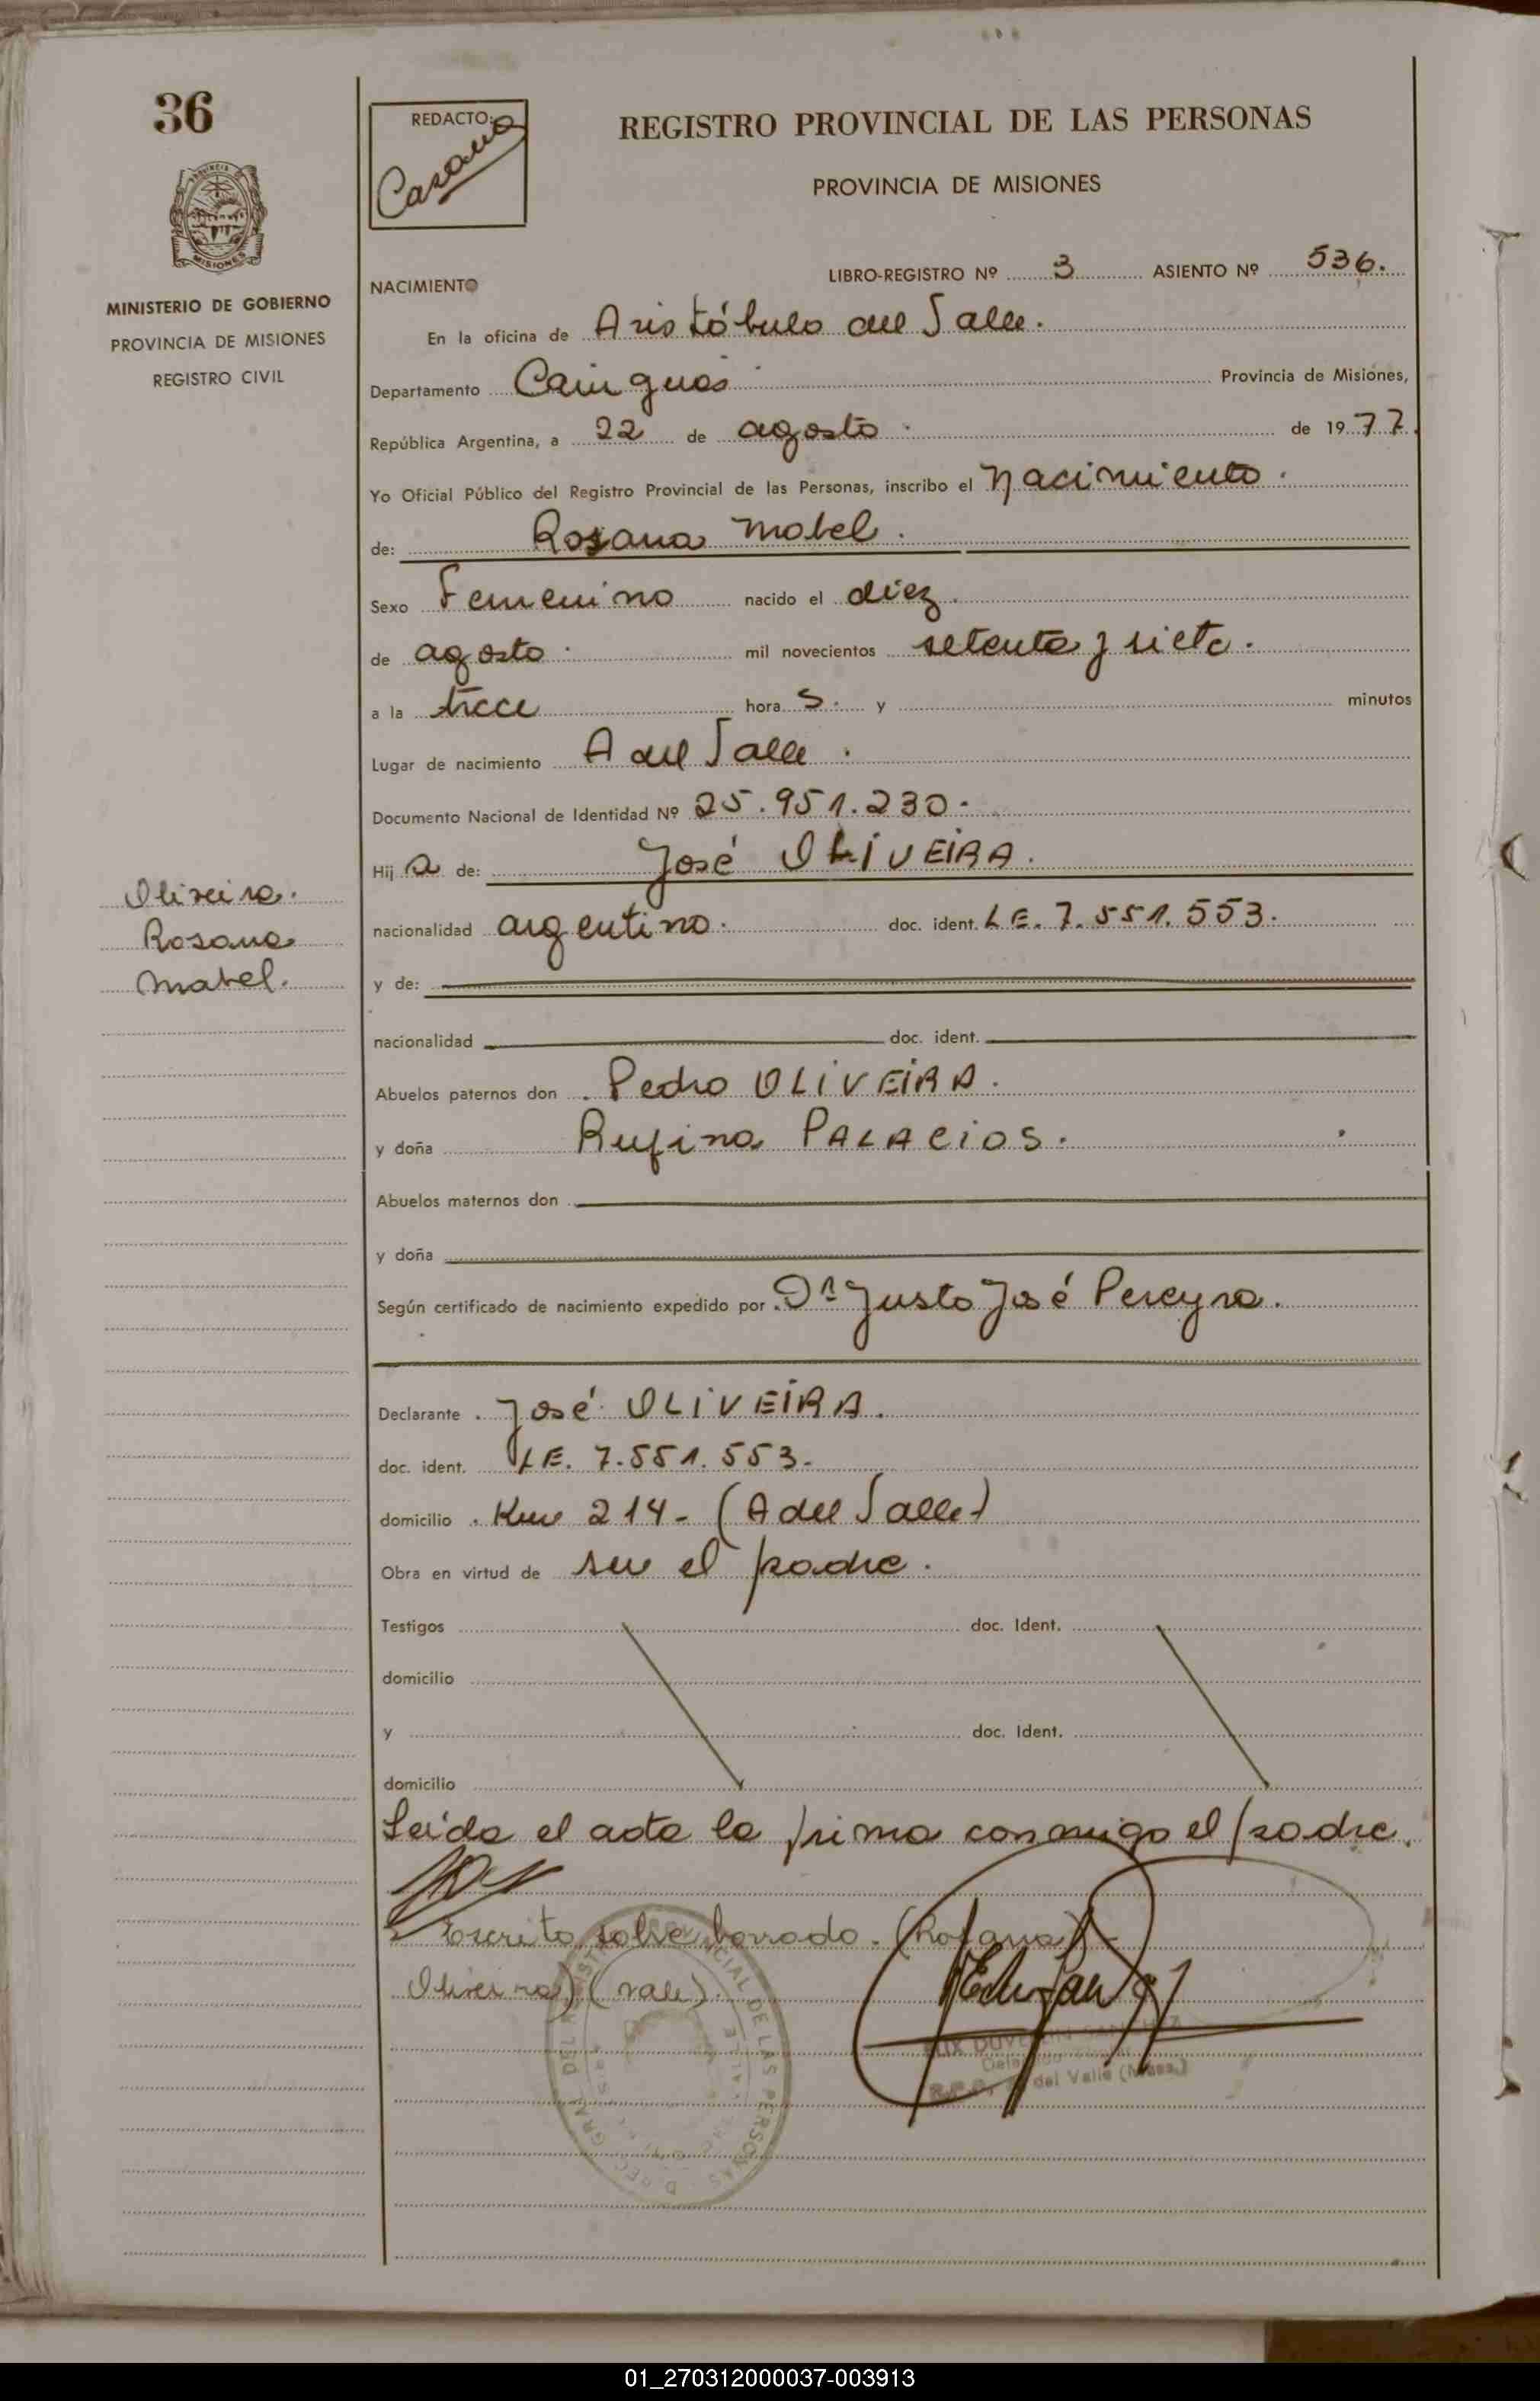 36
REDACTO:
REGISTRO PROVINCIAL DE LAS PERSONAS
PROVINCIA DE MISIONES
MINISTERIO DE GOBIERNO
PROVINCIA DE MISIONES
REGISTRO CIVIL
LIBRO-REGISTRO Nº 3 ASIENTO Nº 536.
NACIMIENTO
En la oficina de Aristóbulo del Valle.
Departamento Cainguás Provincia de Misiones,
República Argentina, a 22 de agosto de 1977.
Yo Oficial Público del Registro Provincial de las Personas, inscribo el nacimiento.
de: Rosana Mabel.
Sexo Femenino nacido el diez.
de agosto. mil novecientos setenta y siete.
a la trece hora s. y minutos
Lugar de nacimiento A del Valle.
Documento Nacional de Identidad Nº 25.951.230.
Hij a de: José OLIVEIRA.
nacionalidad argentino. doc. ident. L.E. 7.551.553.
y de:
nacionalidad doc. ident.
Abuelos paternos don Pedro OLIVEIRA.
y doña Rufina PALACIOS.
Abuelos maternos don
y doña
Según certificado de nacimiento expedido por Dr Justo José Pereyra.
Declarante José OLIVEIRA.
doc. ident. L.E. 7.551.553.
domicilio Km 214- (A del Valle)
Obra en virtud de ser el padre.
Testigos doc. Ident.
domicilio
y doc. Ident.
domicilio
Leída el acta la firma conmigo el padre.
Escrito sobre borrado. (Rosana)
Oliveira) (vale).
del Valle (Mnes.)
Oliveira.
Rosana
Mabel.
01_270312000037-003913